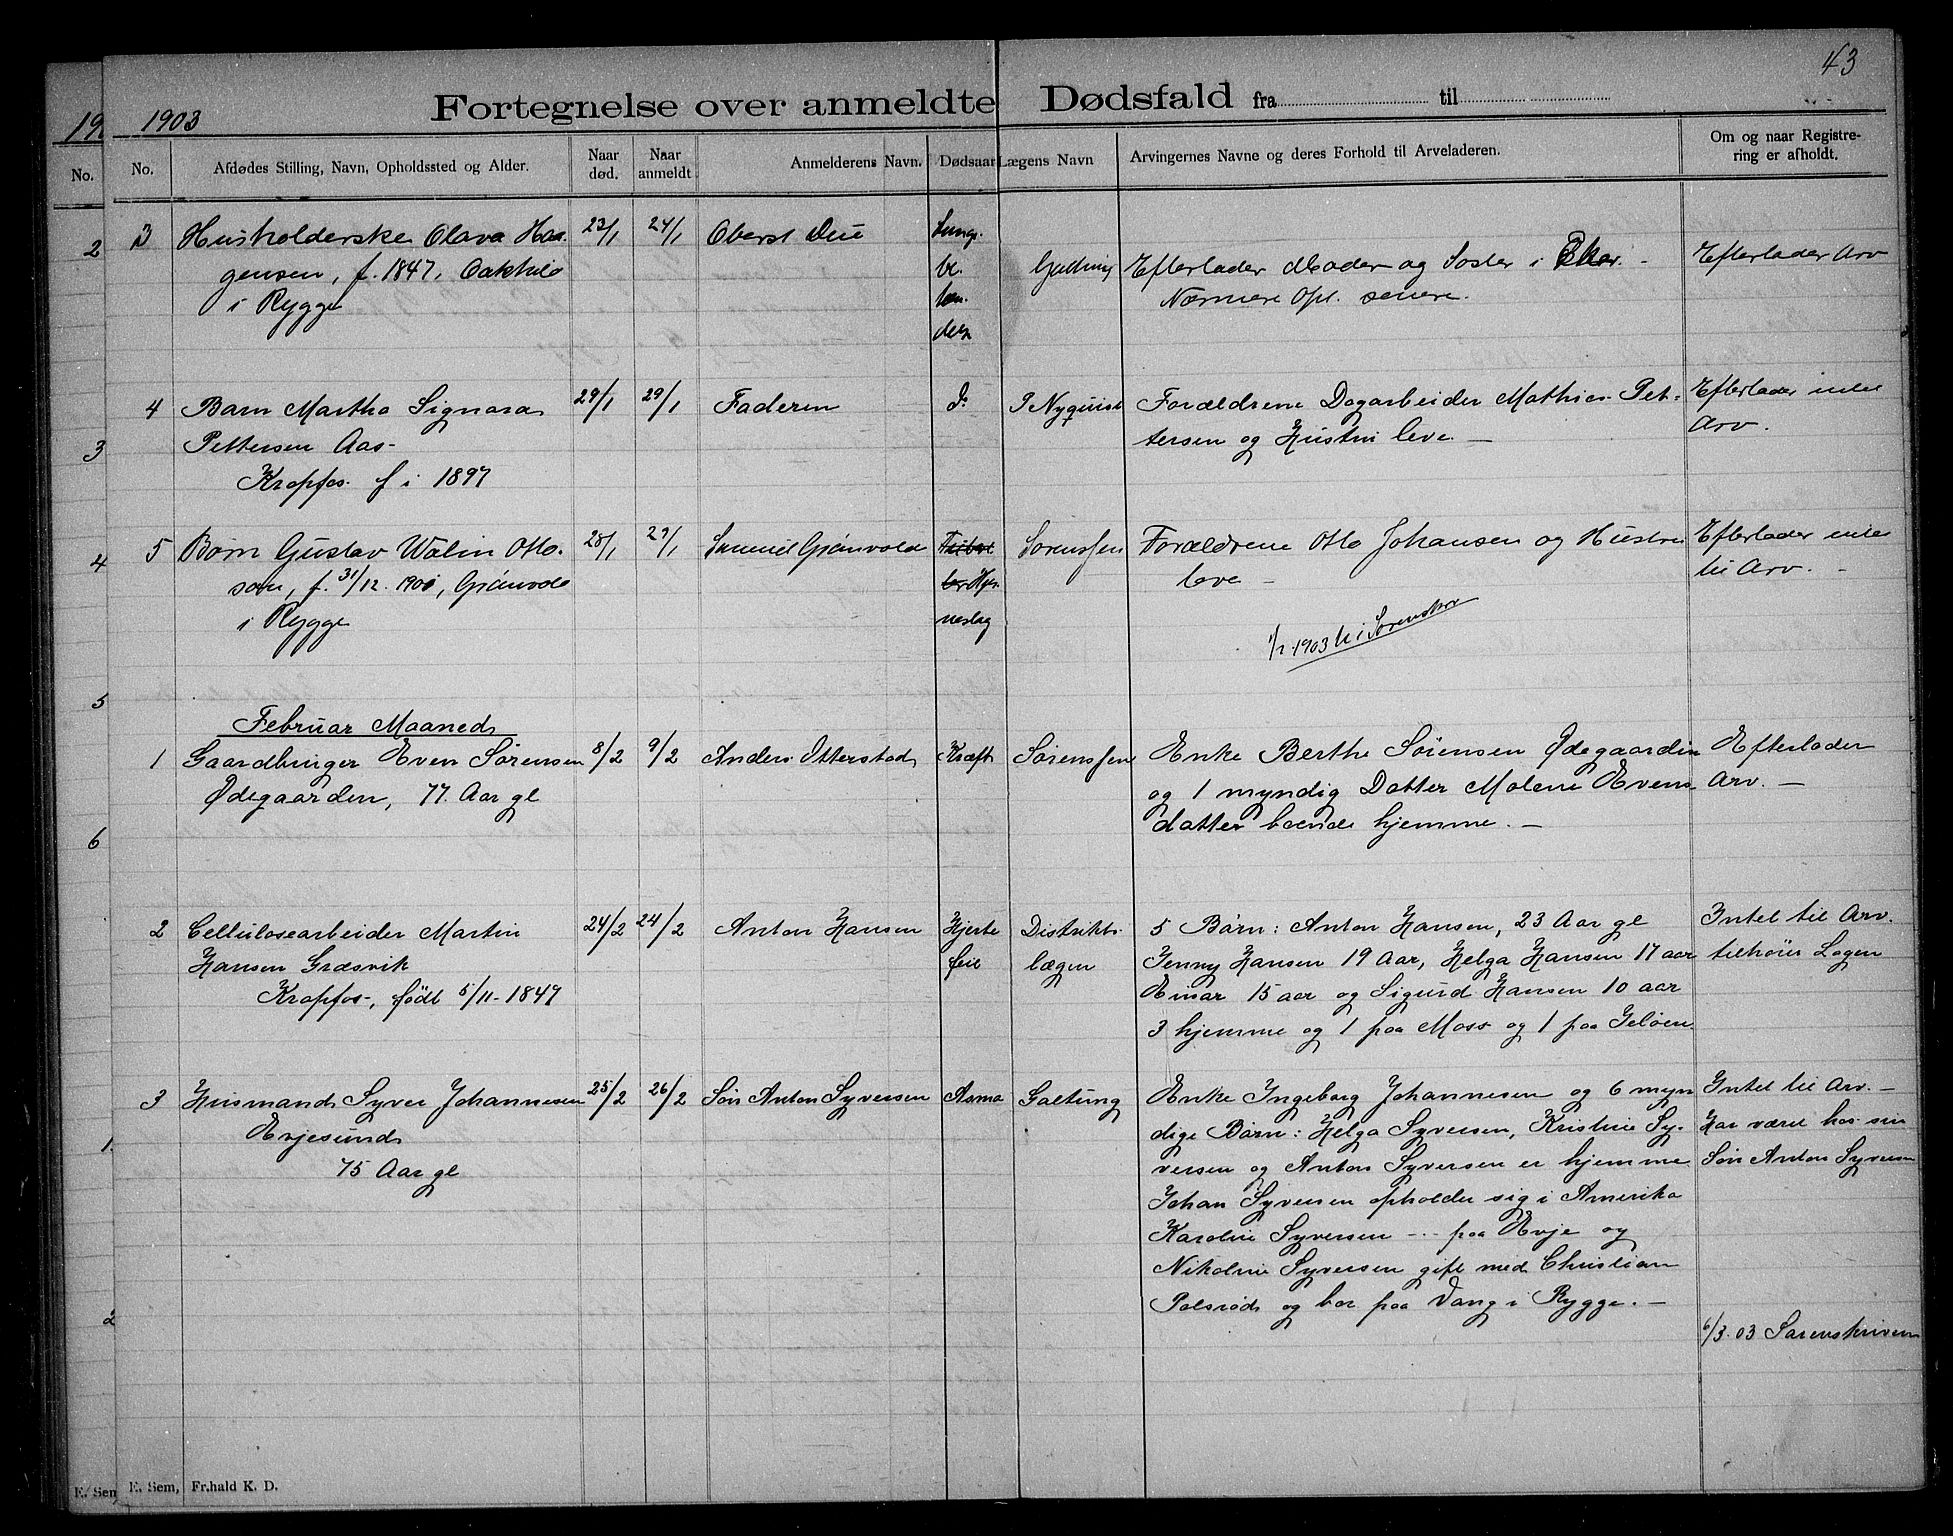 43
1903
Fortegnelse over anmeldte Dødsfald fra til
No.
Afdødes Stilling, Navn, Opholdssted og Alder.
Naar død.
Naar anmeldt
Anmelderens Navn.
Dødsaar
Lægens Navn
Arvingernes Navne og deres Forhold til Arveladeren.
Om og naar Registre-
ring er afholdt.
3 Husholderske Olava Haa- 23/1 24/1 Oberst Due
gensen, f. 1847, Galtung Efterlader Moder og Søster i Efterlader Arv
i Rygge Nærmere Opl. senere.
4 Barn Martha Signora 29/1 29/1 Faderen Do Nyquist Forældrene Dagarbeider Mathias Pet- Efterlader intet
Pettersen Aas- tersen og Hustru leve. — Arv.
Krapfos f i 1897
5 Børn Gustav Walin Otto- 28/1 29/1 Samuel Grønvold Sørenssen Forældrene Otto Johansen og Hustru Efterlader intet
søn, f. 31/12 1901, Grønvold leve — til Arv. —
i Rygge neslag
1/2 1903 til Sorenskr
Februar Maaned
1 Gaardbruger Even Sørensen 8/2 9/2 Anders Otterstad Kræft Sørenssen Enke Berthe Sørensen Ødegaarden Efterlader
Ødegaarden, 77 Aar gl og 1 myndig Datter Molene Evens- Arv. —
datter boende hjemme. —
2 Cellulosearbeider Martin 24/2 24/2 Anton Hansen Hjerte Distrikts- 5 Børn: Anton Hansen, 23 Aar gl Intet til Arv.
Hansen Græsvik feil lægen Jenny Hansen 19 Aar, Helga Hansen 17 aar tilhører Logen
Krapfos-, født 5/11-1847 Einar 15 aar og Sigurd Hansen 10 aar
3 hjemme og 1 paa Moss og 1 paa Jeløen
3 Husmand Syver Johannesen 25/2 26/2 Søn Anton Syversen Asma Galtung Enke Ingeborg Johannesen og 6 myn Intet til Arv. —
Evjesund dige Børn: Helga Syversen, Kristine Sy- Har været hos sin
75 Aar gl versen og Anton Syversen er hjemme Søn Anton Syversen
Johan Syversen opholder sig i Amerika
Karoline Syversen -- paa Evje og
Nikoline Syversen gift med Christian
Palsrød og bor paa Vang i Rygge. —
6/3.03 Sorenskriveren
E. Sem, Fr.hald K. D.